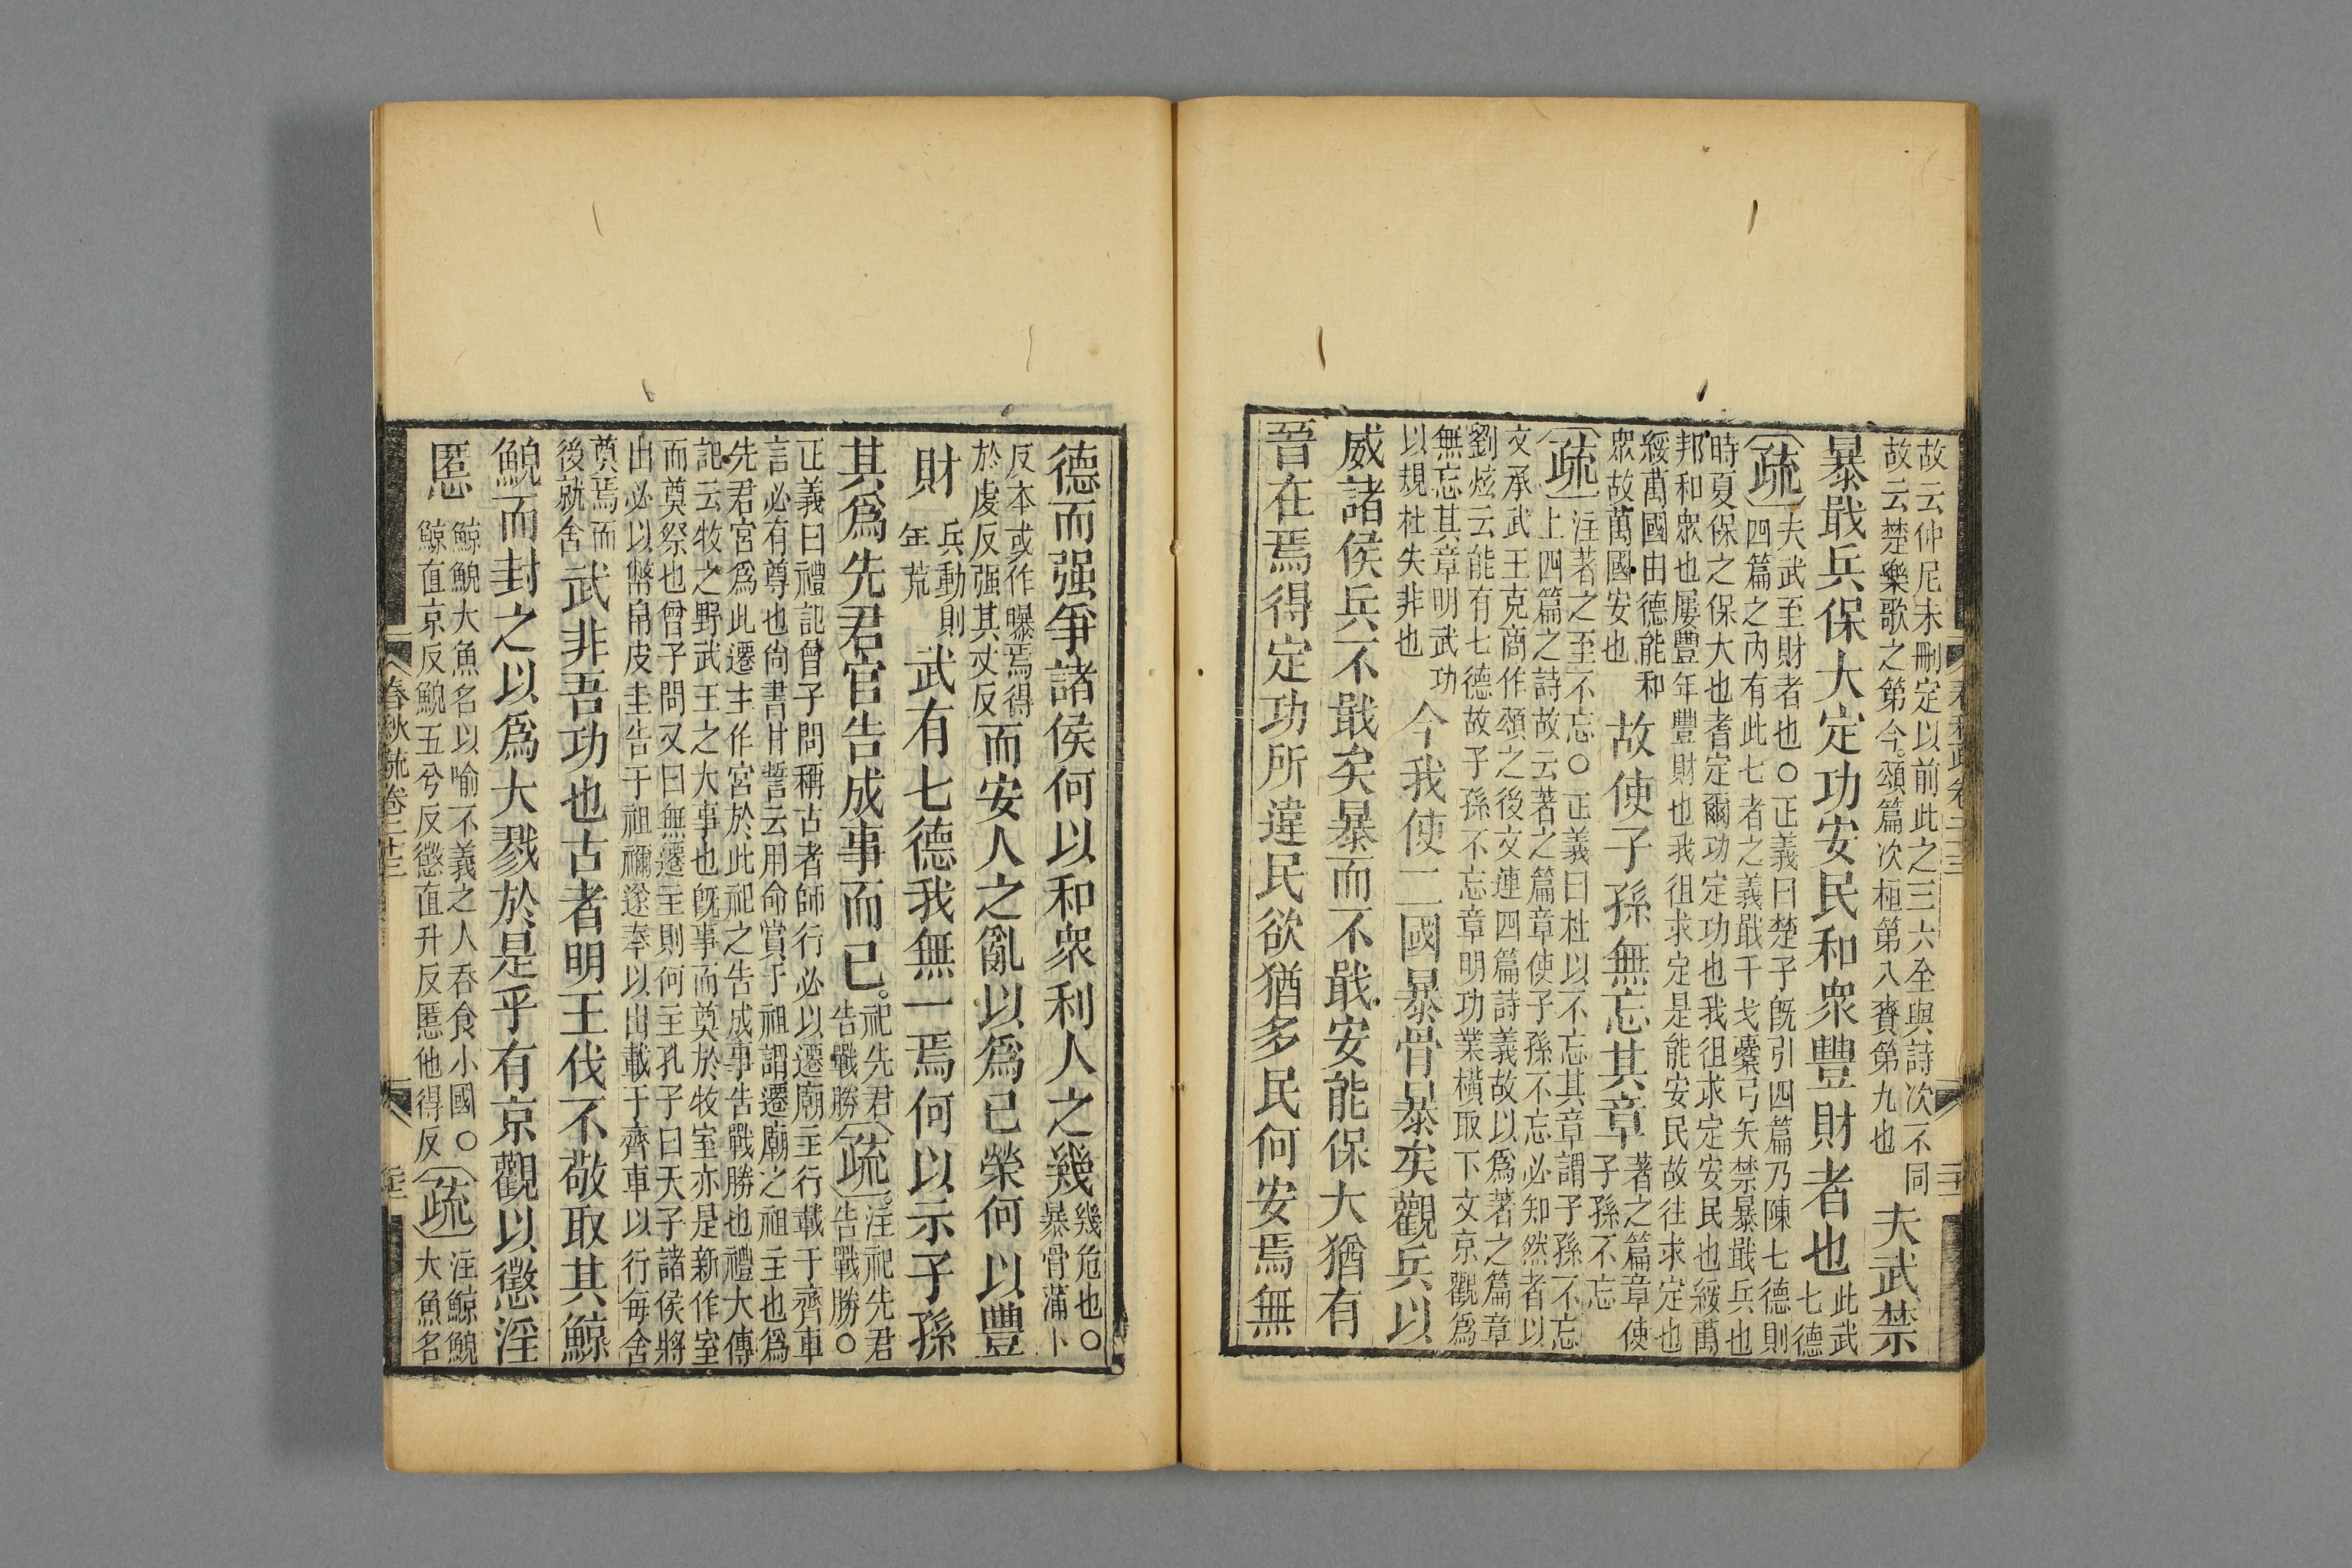 故云仲尼未刪定以前此之三六至與詩次不同
故云楚樂歌之第今頌篇次桓第八賚第九也
夫武禁
暴戢兵保大定功安民和衆豐財者也
此武
七德
疏
夫武至財者也○正義曰楚子旣引四篇乃陳七德則
四篇之內有此七者之義戢干戈櫜弓矢禁暴戢兵也
時夏保之保大也耆定爾功定功也我徂求定安民也綏萬
邦和衆也屢豐年豐財也我徂求定是能安民故往求定也
綏萬國由德能和
衆故萬國安也
故使子孫無忘其章
著之篇章使
子孫不忘
疏
注著之至不忘○正義曰杜以不忘其章謂子孫不忘
上四篇之詩故云著之篇章使子孫不忘必知然者以
文承武王克商作頌之後文連四篇詩義故以爲著之篇章
劉炫云能有七德故子孫不忘章明功業橫取下文京觀爲
無忘其章明武功
以規杜失非也
今我使二國暴骨暴矣觀兵以
威諸侯兵不戢矣暴而不戢安能保大猶有
晉在焉得定功所違民欲猶多民何安焉無
德而强爭諸侯何以和衆利人之幾
幾危也○
暴骨蒲卜
反本或作曝焉得
於虔反强其丈反
而安人之亂以爲己榮何以豐
財
兵動則
年荒
武有七德我無一焉何以示子孫
其爲先君宮告成事而已
祀先君
告戰勝
疏
注祀先君
告戰勝○
正義曰禮記曾子問稱古者師行必以遷廟主行載于齊車
言必有尊也尙書甘誓云用命賞于祖謂遷廟之祖主也爲
先君宮爲此遷主作宮於此祀之告成事告戰勝也禮大傳
記云牧之野武王之大事也旣事而奠於牧室亦是新作室
而奠祭也曾子問又曰無遷主則何主孔子曰天子諸侯將
出必以幣帛皮圭告于祖禰遂奉以出載于齊車以行每舍
奠焉而
後就舍
武非吾功也古者明王伐不敬取其鯨
鯢而封之以爲大戮於是乎有京觀以懲淫
慝
鯨鯢大魚名以喻不義之人吞食小國○
鯨直京反鯢五兮反懲直升反慝他得反
疏
注鯨鯢
大魚名
春秋疏卷二十三